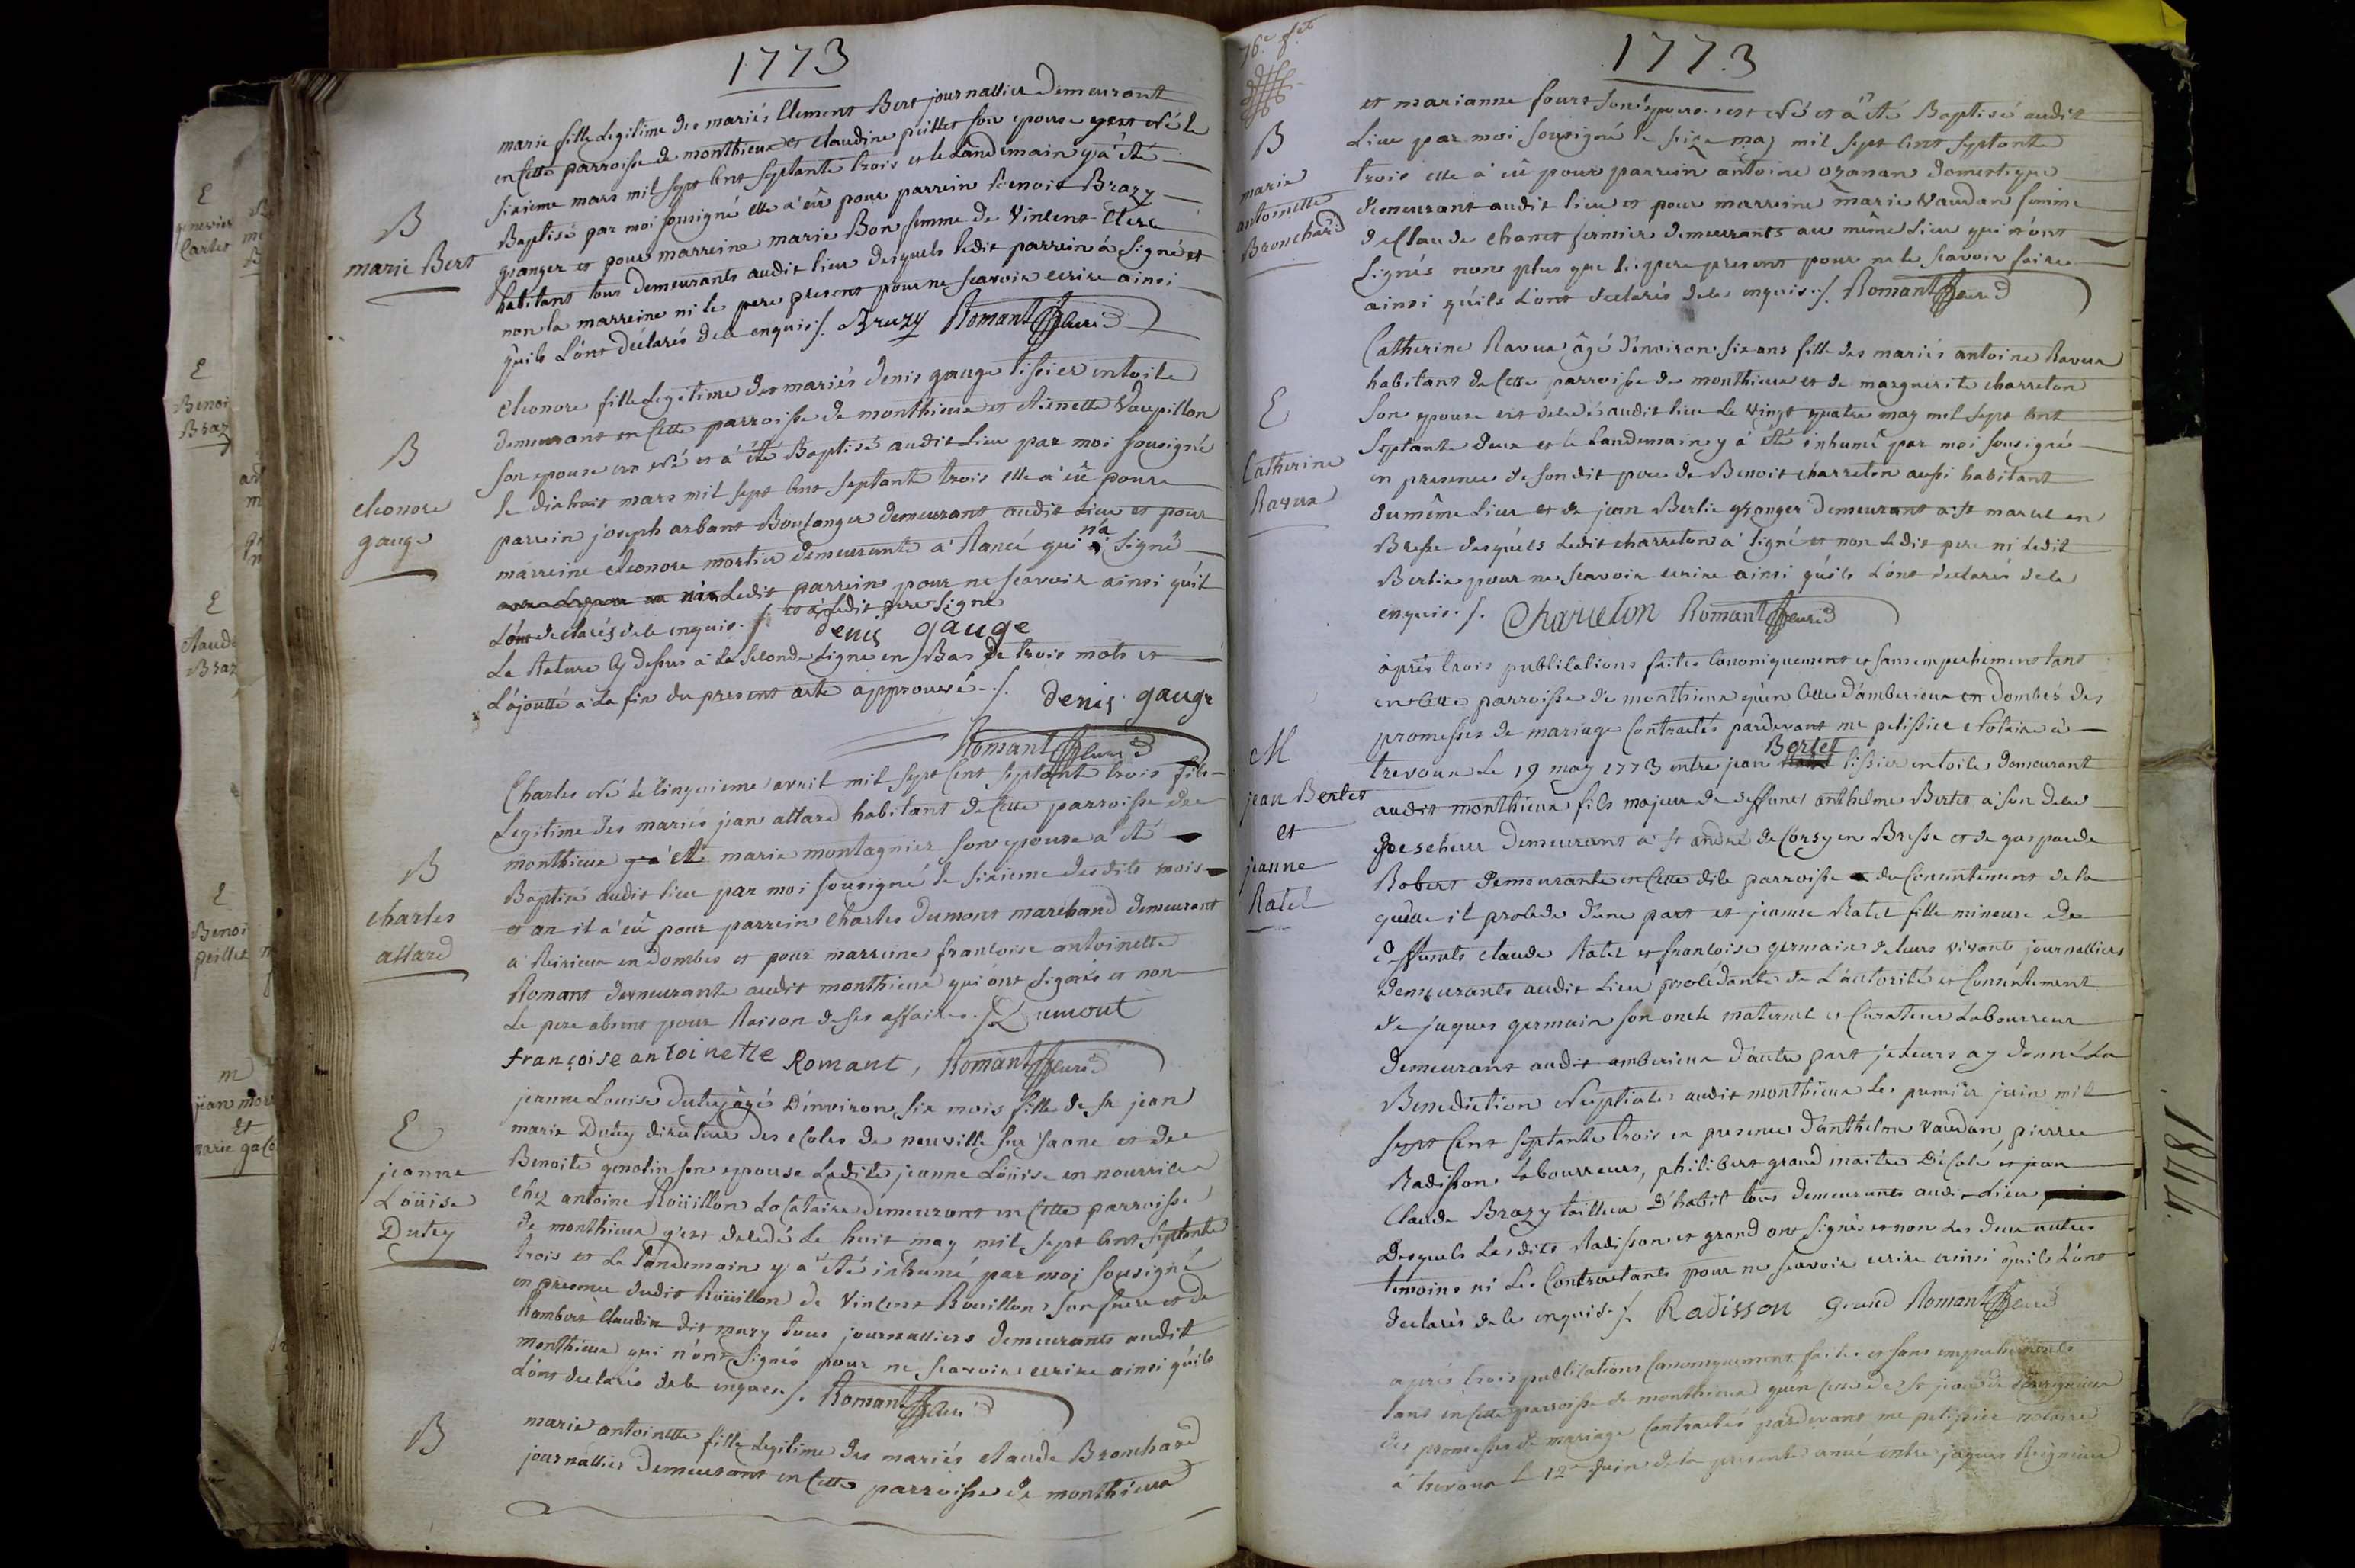 1773
marie fille Legitime des mariés Clement Bert journallier Demeurant
en Cette parroisse de monthieux et Claudine peillet son epouse y est Né le
sixieme mars mil sept Cent septante trois et le Landemain y a été
Baptisé par moi sousigné elle a eû pour parrein Benoit Brazy
B
marie Bert
granger et pour marreine marie Bon femme de Vincent Clerc
habitant tous Demeurants audit lieu desquels ledit parrein à Signé et
non la marreine ni le pere present pour ne scavoir ecrire ainsi
qu'ils L'ont déclarés de ce enquis ./. Brazy Romant Curé
eleonore fille Legitime des mariés denis gauge tissier en toile
demeurant en Cette parroisse de monthieux et Vaupillon
son epouse est Né et a été Baptisé audit Lieu par moi sousigné
B
eleonore
gauge
le dixhuit mars mil sept Cent septante trois elle a eû pour
parrein joseph arbant Boulanger demeurant audit Lieu et pour
marreine eleonore mortier demeurante à Rancé qui n'a Signé
Ledit parrein pour ne scavoir ainsi qu'il
L'ont declarés de ce enquis ./. et a ledit pere Signé
denis gauge
La Rature Cy dessus à la seconde Ligne en Bas de trois mots et
L'ajoutté à la fin du present acte approuvé ./. denis gauge
Romant Curé
Charles Né le Cinquieme avril mil sept Cent septante trois fils
Legitime des mariés jean allard habitant de Cette parroisse de
monthieux et marie montagnier son epouse a été
B
charles
allard
Baptisé audit lieu par moi sousigné le sixieme desdits mois
et an il a eû pour parrein Charles Dumont marchand demeurant
a Reirieux en Dombes et pour marreine francoise antoinette
Romant demeurante audit monthieux qui ont signés et non
Le pere absent pour Raison de ses affaires ./. Dumont
françoise antoinette Romant, Romant Curé
E
jeanne
Loüise
Dutey
jeanne Louise Dutey âgé D'environ six mois fille de Sr jean
marie Dutey directeur des ecoles de neuville sur saone et de
Benoite genotin son epouse Ladite jeanne Loüise en nourrice
chez antoine Roüillon Locataire demeurant en Cette parroisse
de monthieux y est decedé Le huit may mil sept Cent septante
trois et Le Landemain y a été inhumé par moi sousigné
en presence dudit Roüillon de Vincent Rouillon son frere et de
Rambert Claudin dit mary tous journalliers demeurants audit
monthieux qui n'ont Signés pour ne scavoir ecrire ainsi qu'ils
L'ont declarés de ce enquis ./. Romant Curé
B
marie antoinette fille Legitime des mariés claude Bronchard
journallier Demeurant en Cette parroisse de monthieux
1773
B
marie
antoinette
Bronchard
et marianne son epouse est Né et a été Baptisé audit
Lieu par moi sousigné le seize may mil sept Cent septante
trois elle à eû pour parrein antoine ozanan domestique
demeurant audit lieu et pour marreine marie Vaudan femme
de Claude Chanet fermier demeurants au même Lieu qui n'ont
Signés non plus que le pere present pour ne le scavoir faire
ainsi qu'ils L'ont declarés de ce enquis ./. Romant Curé
E
Catherine
Ravux
Catherine Ravux âgé d'environ six ans fille des mariés antoine Ravux
habitant de Cette parroisse de monthieux et de marguerite charreton
Son epouse est decedés audit lieu Le vingt quatre may mil sept Cent
Septante deux et le Landemain y a été inhumé par moi sousigné
en presence de son dit pere de Benoit charreton aussi habitant
du même Lieu et de jean Berlie granger demeurant a St marcel en
Bresse desquels Ledit charreton a signé et non Ledit pere ni Ledit
Berlie pour ne scavoir ecrire ainsi qu'ils L'ont declarés de ce
enquis ./. Charreton Romant Curé
M
jean Bertet
et
jeanne
Ratel
après trois publications faites Canoniquement et sans empechement tant
en Cette parroisse de monthieux qu'en Celle d'amberieux en Dombes des
promesses de mariage Contractés pardevant me pelissier Notaire à
trevoux Le 19 may 1773 entre jean Bertet tissier en toile demeurant
audit monthieux fils majeur de deffunct anthelme Bertet a son deces
pescheur demeurant a St andré de Corsy en Bresse et de gasparde
Robert demeurante en Cette dite parroisse du Consentement de la
quelle il procede d'une part et jeanne Ratel fille mineure de
deffunts claude Ratel et francoise germain de leurs vivants journalliers
demeurants audit Lieu procédante de L'autorité et Consentement
de jaques germain son oncle maternel et Curateur Labourreur
demeurant audit amberieux d'autre part je leurs ay donné La
Benediction Nuptiale audit monthieux Le premier juin mil
sept Cent septante trois en presence d'anthelme Vaudan, pierre
Radisson Labourreurs, philibert grand maitre D'écolé et jean
Claude Brazy tailleur D'habit tous demeurants audit Lieu
Desquels Lesdits Radisson et grand ont signés et non Les deux autres
temoins ni Les Contractants pour ne scavoir ecrire ainsi qu'ils L'ont
declarés de ce enquis ./. Radisson Grand Romant Curé
après trois publications Canoniquement faites et sans empechements
tant en Cette parroisse de monthieux qu'en Celle de St jean de
des promesses de mariage Contractés pardevant me pelissier notaire
à trevoux Le 12e juin de la presente anné entre jaques Reignieux